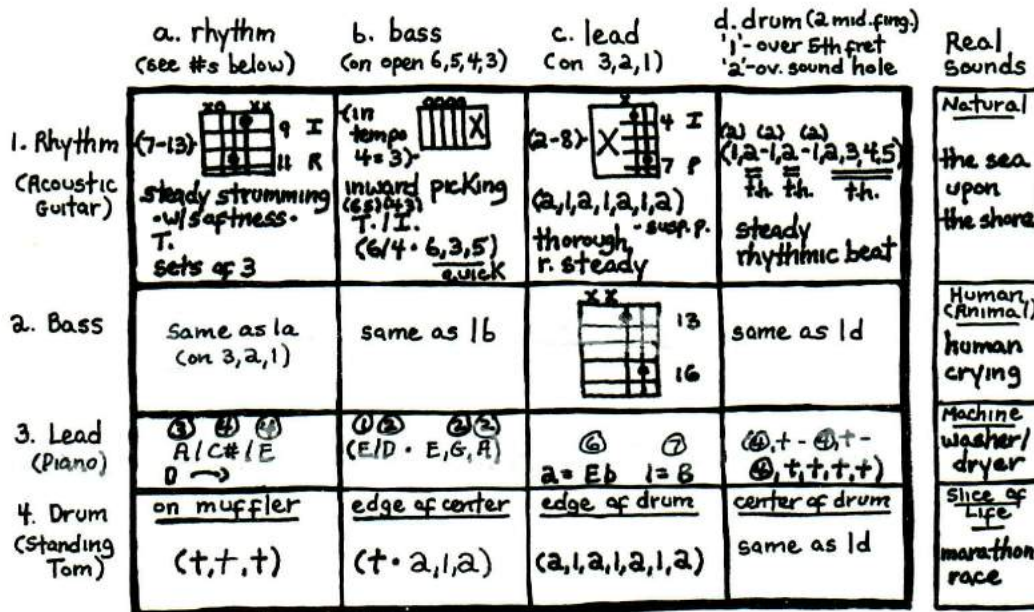 a. rhythm
(see #s below)
b. bass
(on open 6,5,4,3)
c. lead
(on 3,2,1)
d. drum (2 mid. fing.)
'1'- over 5th fret
'2'- ov. sound hole
Real
Sounds
1. Rhythm
(Acoustic
Guitar)
(7-13)
xo xx
9 I
11 R
steady strumming
·w/softness·
T.
sets of 3
(in
tempo
4=3)
oooo
X
inward picking
(6,5) (4,3)
T. / I.
(6/4 · 6,3,5)
quick
(2-8)
x
X
4 I
7 P
(2,1,2,1,2,1,2)
- susp. p.
thorough,
r. steady
(2) (2) (2)
(1,2-1,2-1,2,3,4,5)
th. th. th.
steady
rhythmic beat
Natural
the sea
upon
the shore
2. Bass
same as 1a
(on 3,2,1)
same as 1b
x x
13
16
same as 1d
Human
(Animal)
human
crying
3. Lead
(Piano)
3 4 4
A/C#/E
D →
1 2 2 2
(E/D · E,G,A)
6 7
2= Eb 1= B
(4,t - 4,t -
4,t,t,t,t)
Machine
washer/
dryer
4. Drum
(Standing
Tom)
on muffler
(t,t,t)
edge of center
(t · 2,1,2)
edge of drum
(2,1,2,1,2,1,2)
center of drum
same as 1d
Slice of
Life
marathon
race